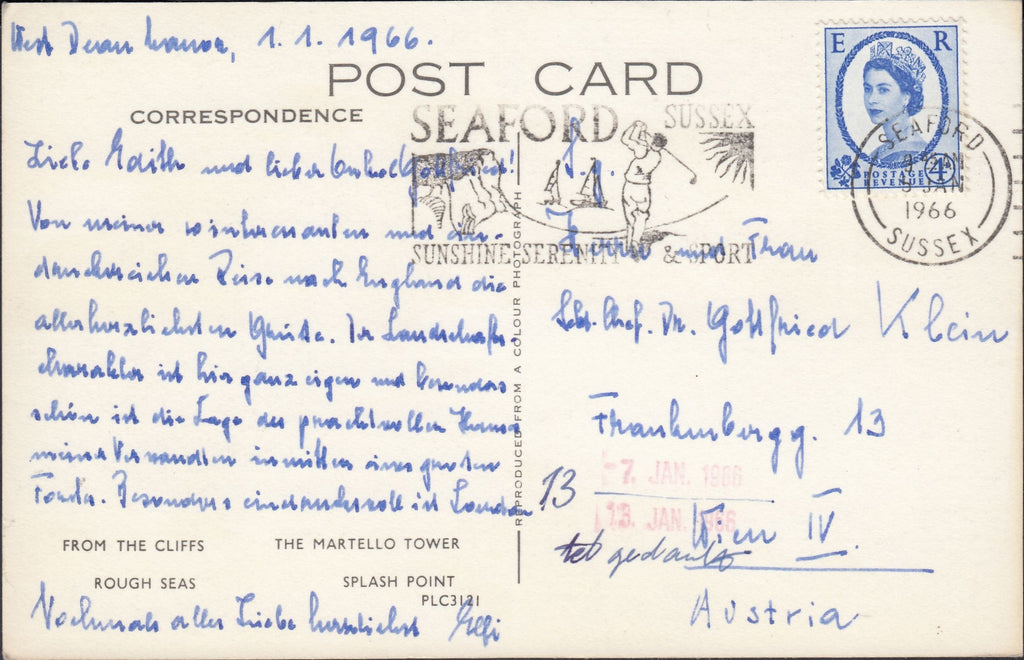 West Dean Manor, 1.1.1966.
POST CARD
CORRESPONDENCE
Liebe Edith und lieber Gottfried!
Von meiner winterlichen und
Reise nach England die
allerherzlichsten Grüße. Der Landschafts-
charakter ist hier ganz eigen und besonders
schön ist die Lage des prachtvollen Hauses
meiner Verwandten inmitten eines großen
Besonders eindrucksvoll ist London
FROM THE CLIFFS THE MARTELLO TOWER
ROUGH SEAS SPLASH POINT
PLC3121
Nochmals alles Liebe herzlichst Elfi
REPRODUCED FROM A COLOUR PHOTOGRAPH
SEAFORD SUSSEX
SUNSHINE SERENITY & SPORT
E R
POSTAGE 4D
REVENUE
SEAFORD
5 JAN
1966
SUSSEX
Herrn und Frau
Dr. Gottfried Klein
Frankenbergg. 13
-7. JAN. 1966
13
13. JAN. 1966
Wien IV.
Austria